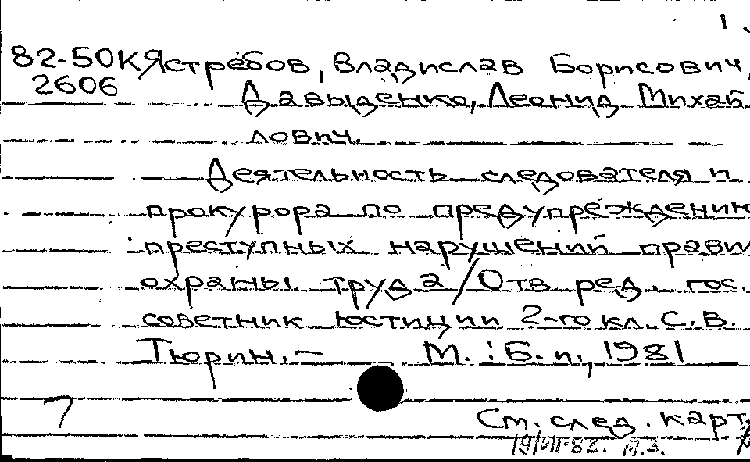 1.
82-50К Ястребов, Владислав Борисович,
2606 Давыденко, Леонид Михай
лович.
Деятельность следователя и
прокурора по предупреждению
преступных нарушений прави
охраны труда/Отв ред. гос.
советник юстиции 2-го кл. С.В.
Тюрин.— М.: Б.и., 1981
7
См. след. карт
19/VII-82. М.З.